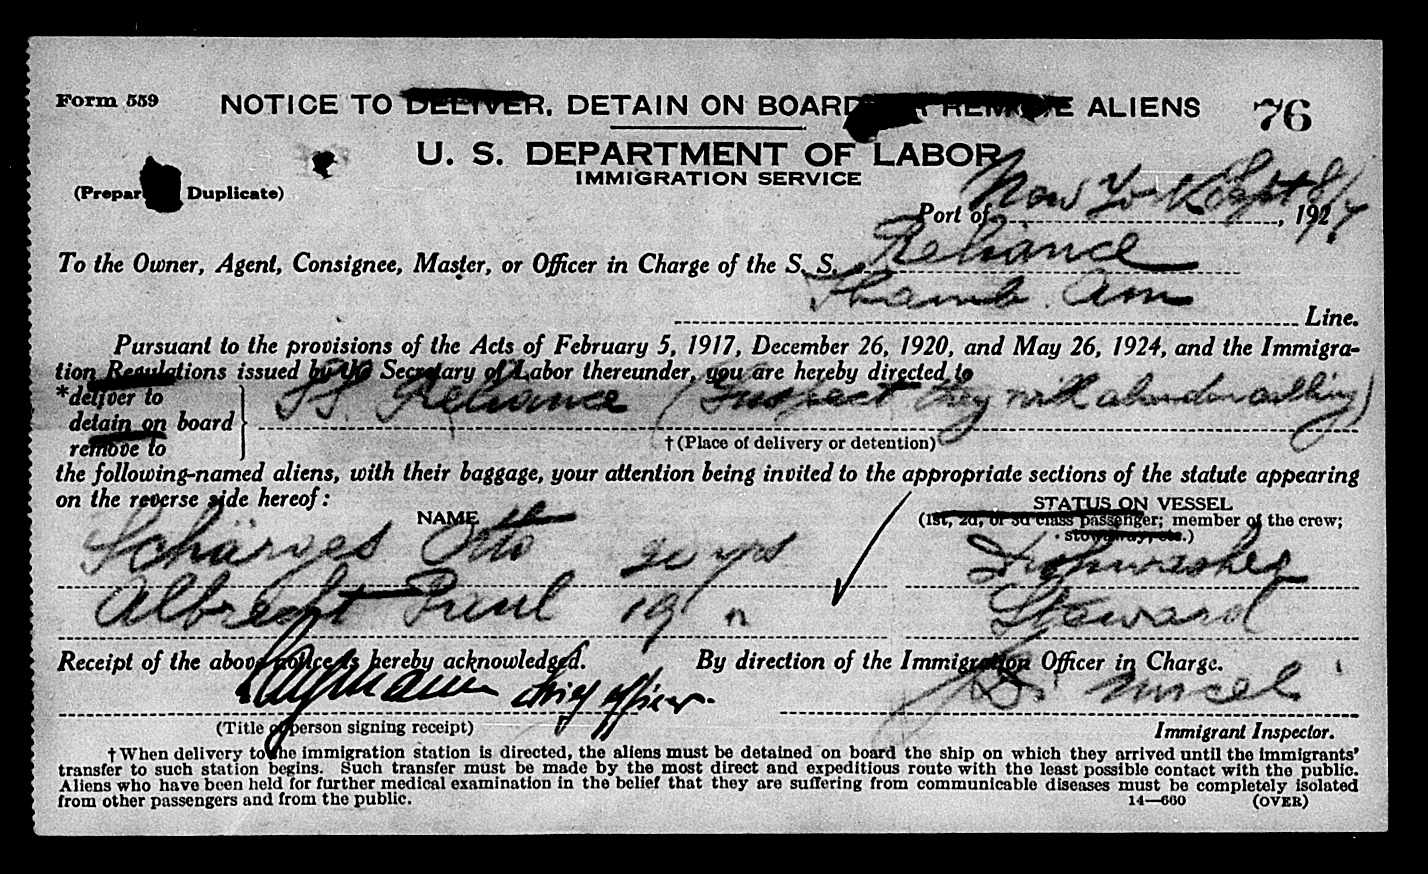 Form 559
NOTICE TO DELIVER, DETAIN ON BOARD OR REMOVE ALIENS
76
U. S. DEPARTMENT OF LABOR
IMMIGRATION SERVICE
(Prepare Duplicate)
Port of New York Sept 8/7, 192
To the Owner, Agent, Consignee, Master, or Officer in Charge of the S. S. Reliance
Hamb. Am Line.
Pursuant to the provisions of the Acts of February 5, 1917, December 26, 1920, and May 26, 1924, and the Immigra-
tion Regulations issued by the Secretary of Labor thereunder, you are hereby directed to
*deliver to
detain on board
remove to
SS. Reliance (Suspect they will abandon calling)
†(Place of delivery or detention)
the following-named aliens, with their baggage, your attention being invited to the appropriate sections of the statute appearing
on the reverse side hereof:
NAME
STATUS ON VESSEL
(1st, 2d, or 3d class passenger; member of the crew;
stowaway, etc.)
Schärges Otto 20 yrs Dishwasher
Albrecht Paul 19 " Steward
Receipt of the above notice is hereby acknowledged.
By direction of the Immigration Officer in Charge.
chief officer.
(Title of person signing receipt)
Immigrant Inspector.
†When delivery to the immigration station is directed, the aliens must be detained on board the ship on which they arrived until the immigrants'
transfer to such station begins. Such transfer must be made by the most direct and expeditious route with the least possible contact with the public.
Aliens who have been held for further medical examination in the belief that they are suffering from communicable diseases must be completely isolated
from other passengers and from the public.
14—660
(OVER)